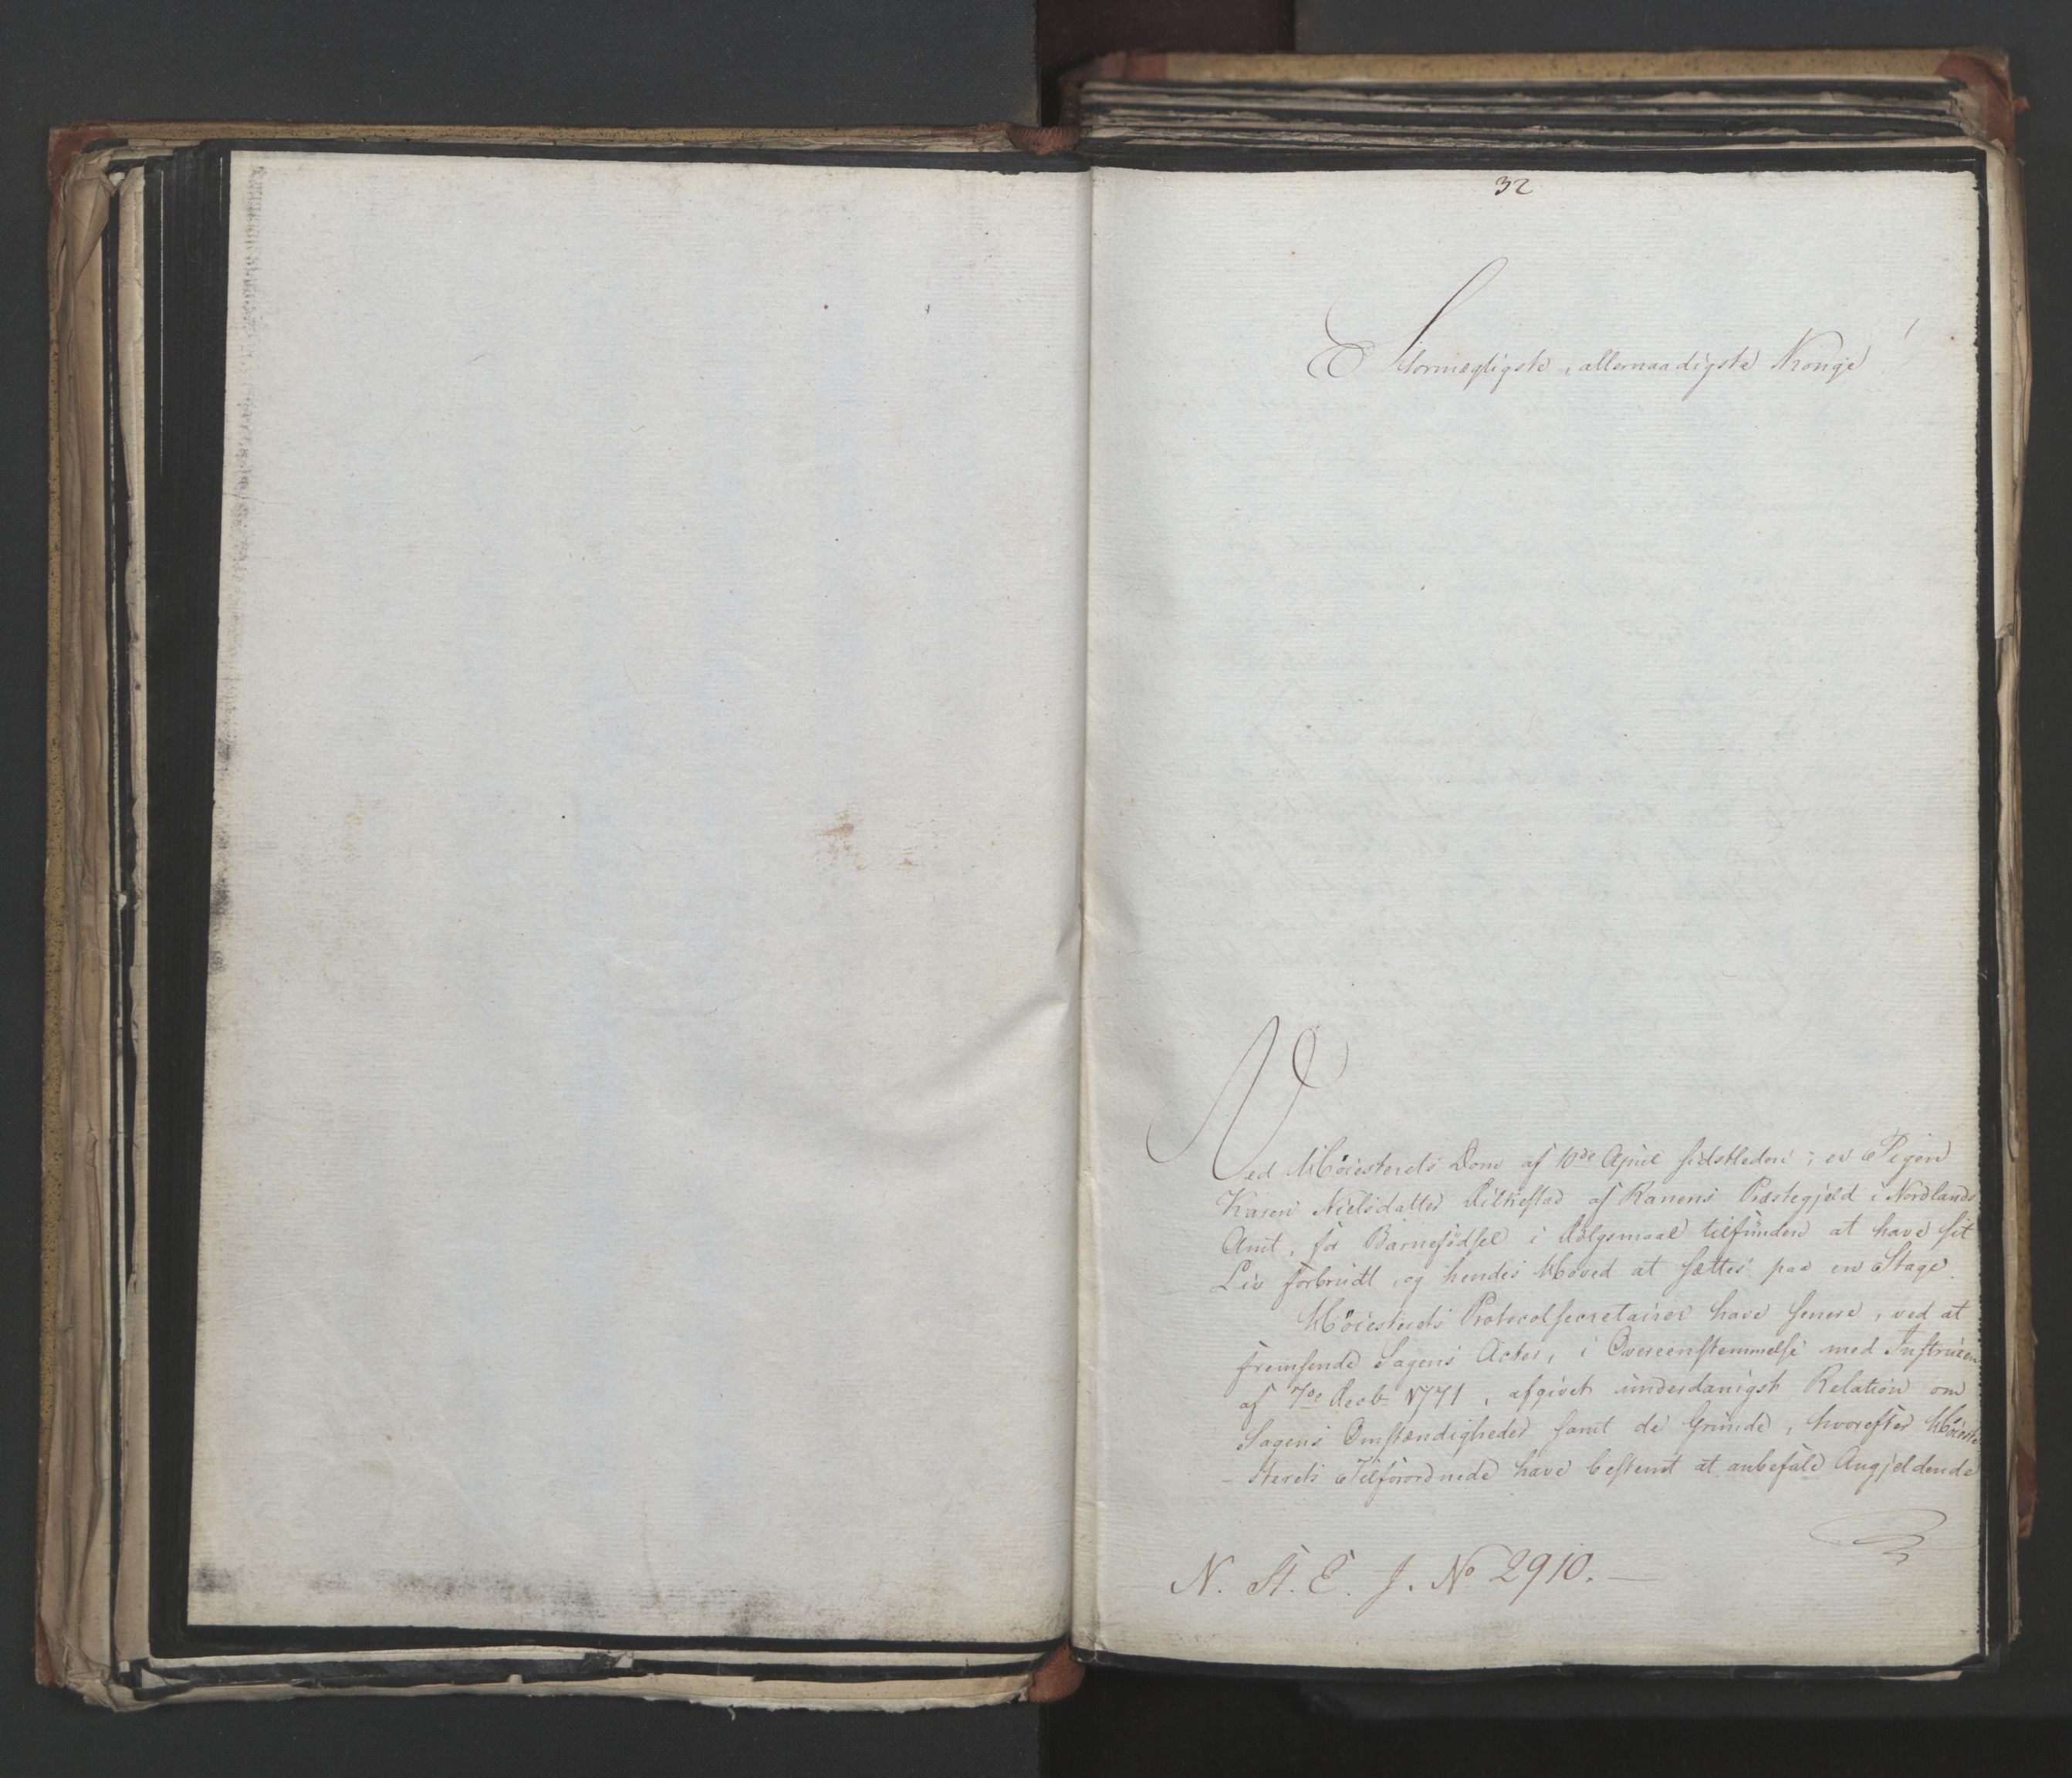 32
Stormægtigste, allernaadigste Konge!
Ved Høiesterets Dom af 10de April sidstleden, er Pigen
Karen Nielsdatter af Ranens Præstegjeld i Nordlands
Amt, for Barnefødsel i Dølgsmaal tilfunden at have sit
Liv forbrudt, og hendes Hoved at sættes paa en Stage.
Høiesterets Protocolsecretairer have senere, ved at
fremsende Sagens Acter, i Overeenstemmelse med Instruxen
af 7de Decbr 1771, afgivet underdanigst Relation om
Sagens Omstændigheder samt de Grunde, hvorefter Høieste-
-sterets Tilforordnede have bestemt at anbefale Angjeldende
N. St. E. J. No 2910. —